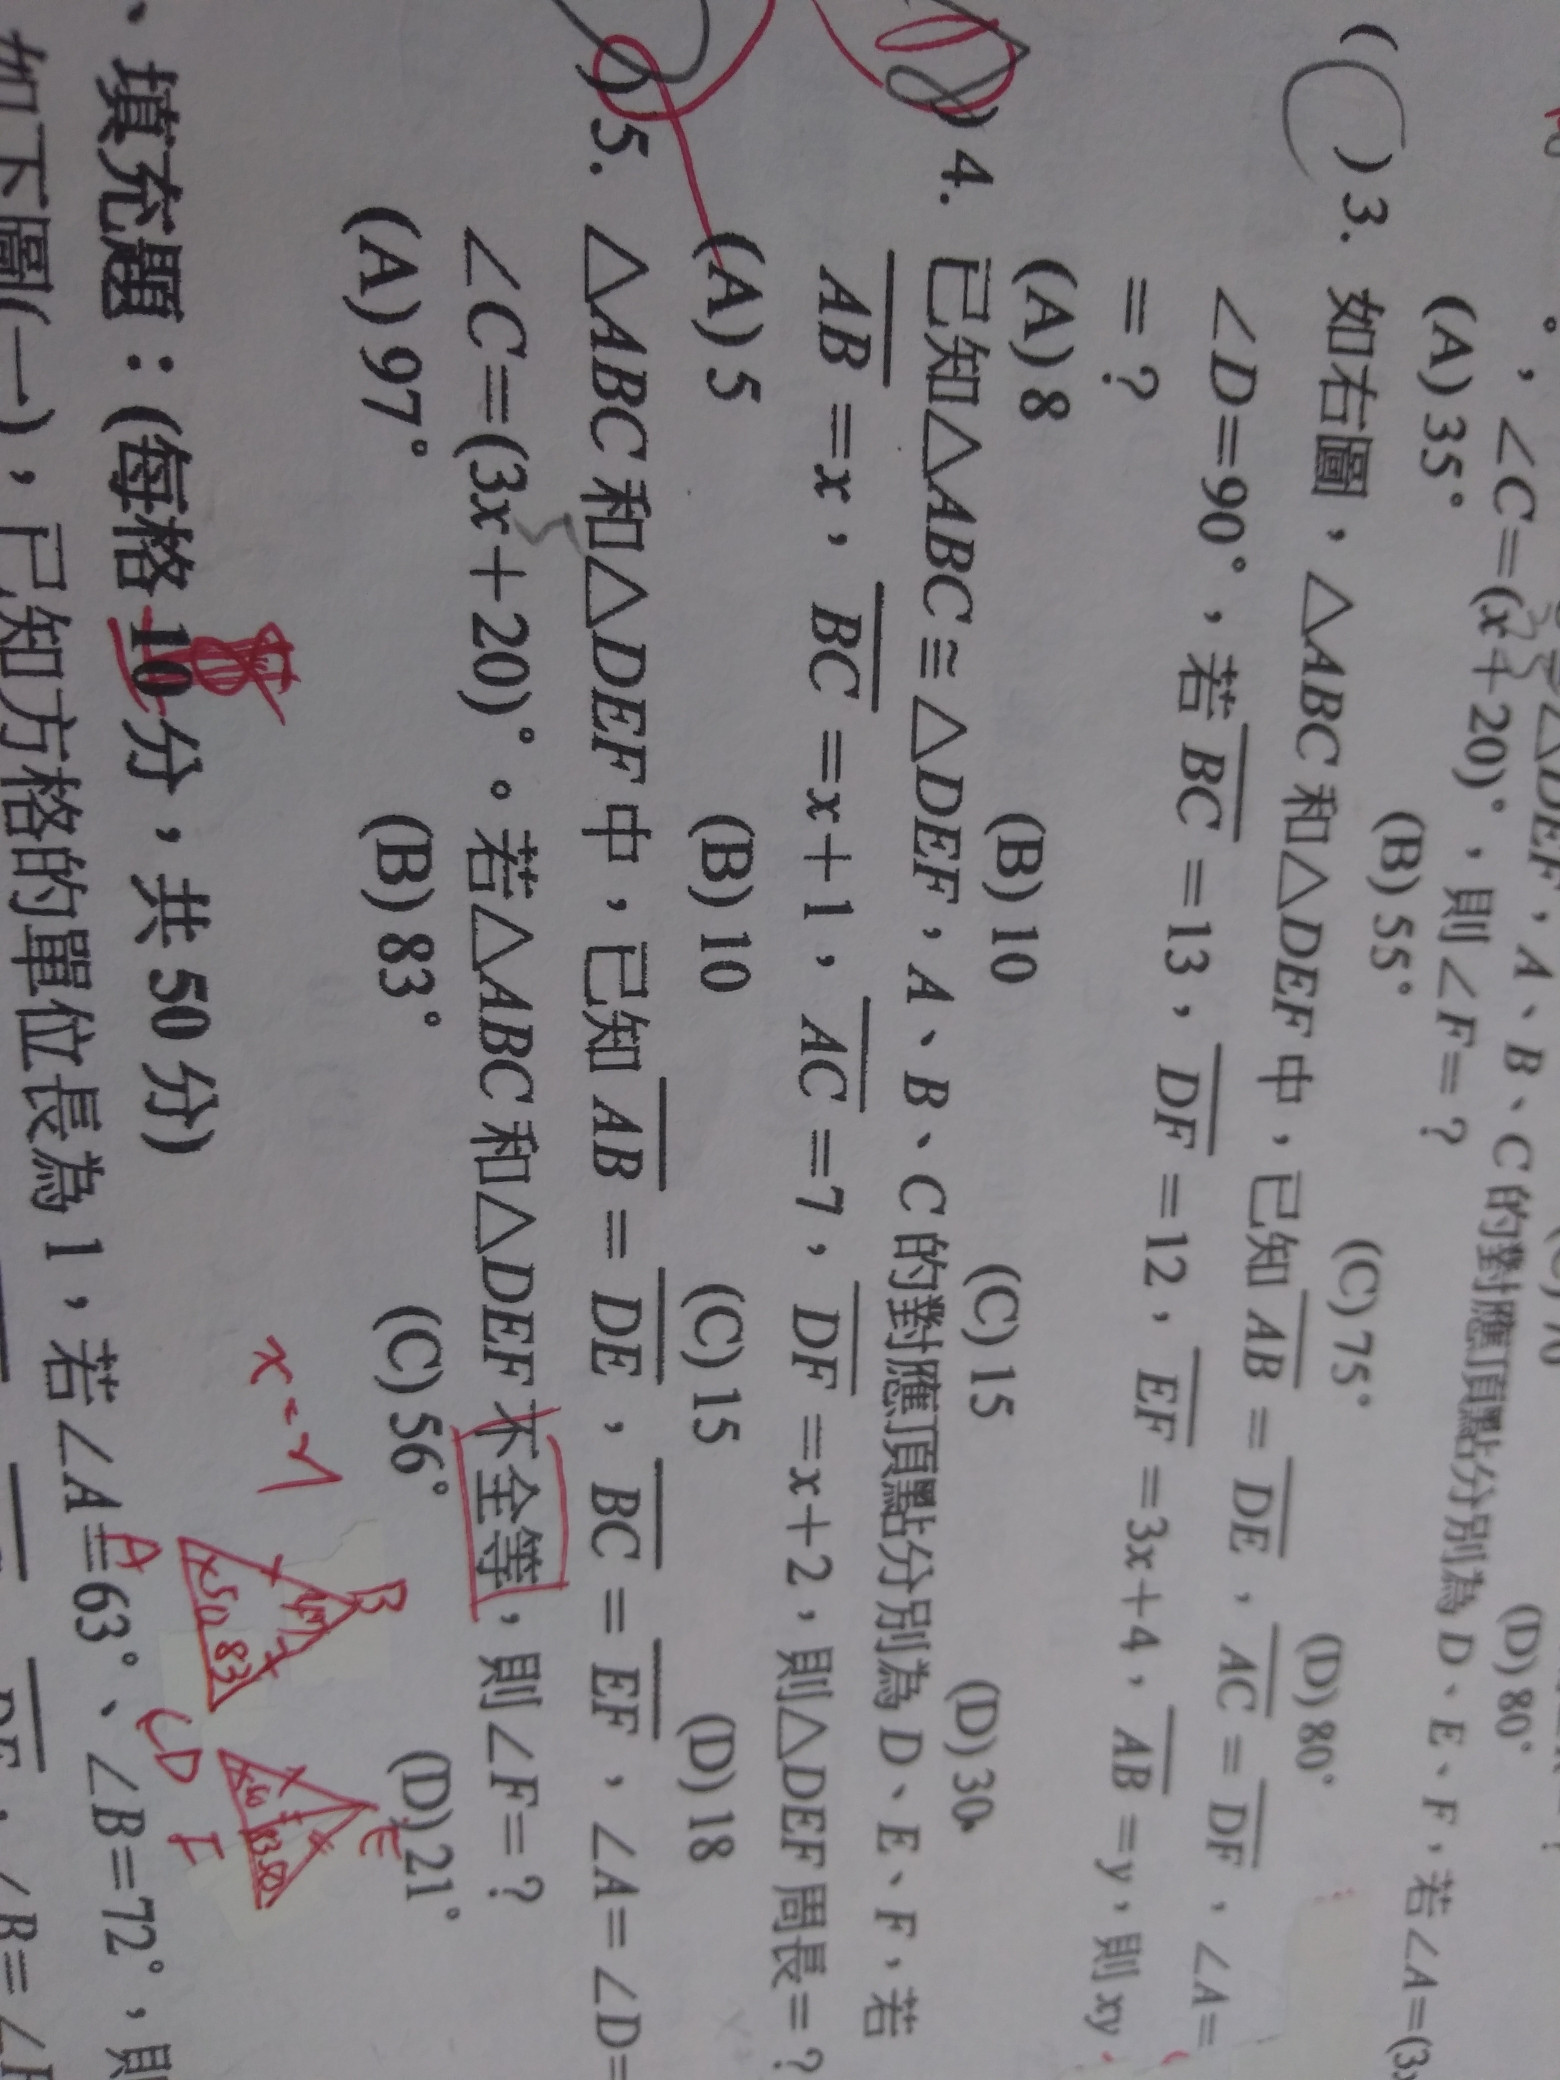 △DEF，A、B、C的對應頂點分別為D、E、F，若∠A=(3x
°，∠C=(x+20)°，則∠F=？
(A) 35° (B) 55° (C) 75° (D) 80°
( )3. 如右圖，△ABC和△DEF中，已知AB=DE，AC=DF，∠A=
∠D=90°，若BC=13，DF=12，EF=3x+4，AB=y，則xy
=？
(A) 8 (B) 10 (C) 15 (D) 30
)4. 已知△ABC≅△DEF，A、B、C的對應頂點分別為D、E、F，若
AB=x，BC=x+1，AC=7，DF=x+2，則△DEF周長=？
(A) 5 (B) 10 (C) 15 (D) 18
)5. △ABC和△DEF中，已知AB=DE，BC=EF，∠A=∠D=
∠C=(3x+20)°。若△ABC和△DEF不全等，則∠F=？
(A) 97° (B) 83° (C) 56° (D) 21°
B
A
50
83
C
D
E
F
、填充題：(每格10分，共50分)
8
如下圖(一)，已知方格的單位長為1，若∠A=63°、∠B=72°，則